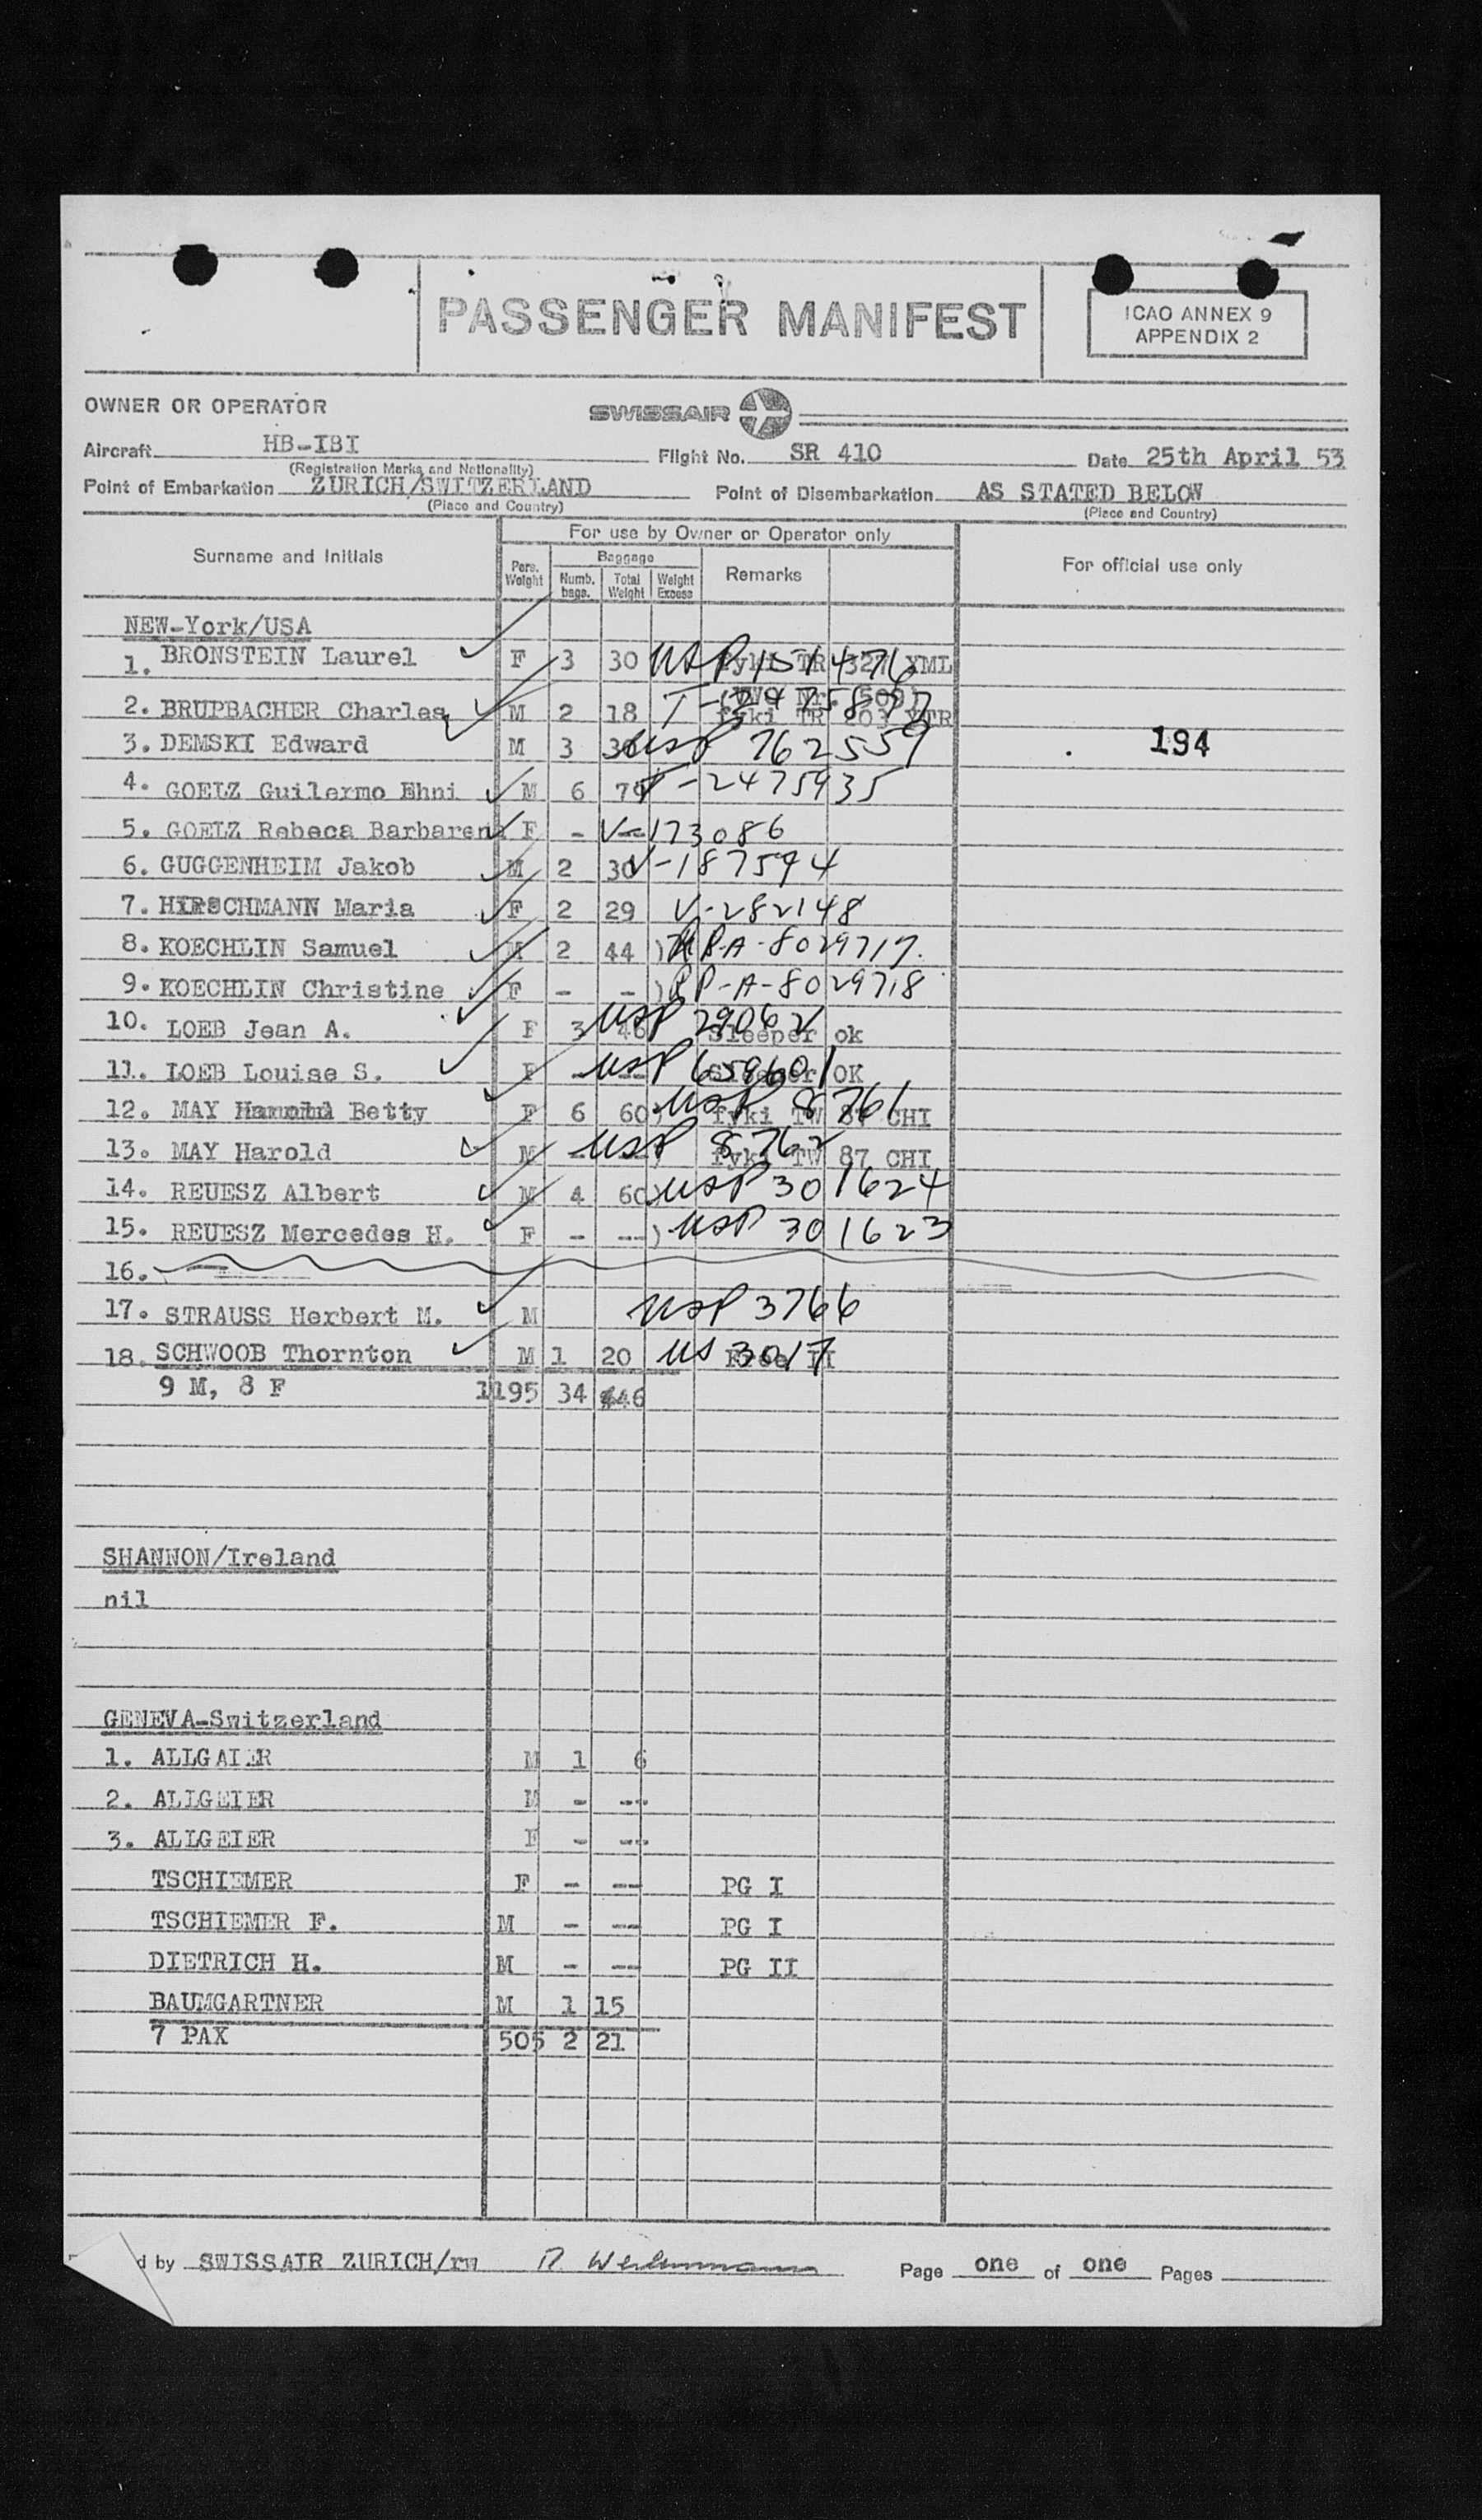 PASSENGER MANIFEST
ICAO ANNEX 9
APPENDIX 2
OWNER OR OPERATOR
SWISSAIR
Aircraft HB-IBI Flight No. SR 410 Date 25th April 53
(Registration Marks and Nationality)
Point of Embarkation ZURICH/SWITZERLAND Point of Disembarkation AS STATED BELOW
(Place and Country) (Place and Country)
For use by Owner or Operator only
Surname and Initials Pers. Weight Baggage Numb. bags. Total Weight Weight Excess Remarks For official use only
NEW-York/USA
1. BRONSTEIN Laurel F 3 30 USP 151476 fyki TR 327 XML
2. BRUPBACHER Charles M 2 18 T-2475877 fyki TR 203 XTR
3. DEMSKI Edward M 3 30 USP 762559 194
4. GOELZ Guilermo Ehni M 6 79 T-2475935
5. GOELZ Rebeca Barbarena F - V-173086
6. GUGGENHEIM Jakob M 2 30 V-187594
7. HIRSCHMANN Maria F 2 29 V-282148
8. KOECHLIN Samuel M 2 44 ) RP-A-8029717
9. KOECHLIN Christine F - - ) RP-A-8029718
10. LOEB Jean A. F 3 46 USP 29062 Sleeper ok
11. LOEB Louise S. F - -- USP 659601 Sleeper OK
12. MAY Betty F 6 60) USP 8761 fyki TW 87 CHI
13. MAY Harold M - -- ) USP 8762 fyki TW 87 CHI
14. REUESZ Albert M 4 60) USP 301624
15. REUESZ Mercedes H. F - --) USP 301623
16.
17. STRAUSS Herbert M. M USP 3766
18. SCHWOOB Thornton M 1 20 US 3017 Free II
9 M, 8 F 1195 34 446
SHANNON/Ireland
nil
GENEVA-Switzerland
1. ALLGAIER M 1 6
2. ALLGEIER M - --
3. ALLGEIER F - --
TSCHIEMER F - -- PG I
TSCHIEMER F. M - -- PG I
DIETRICH H. M - -- PG II
BAUMGARTNER M 1 15
7 PAX 505 2 21
d by SWISSAIR ZURICH/rw Page one of one Pages